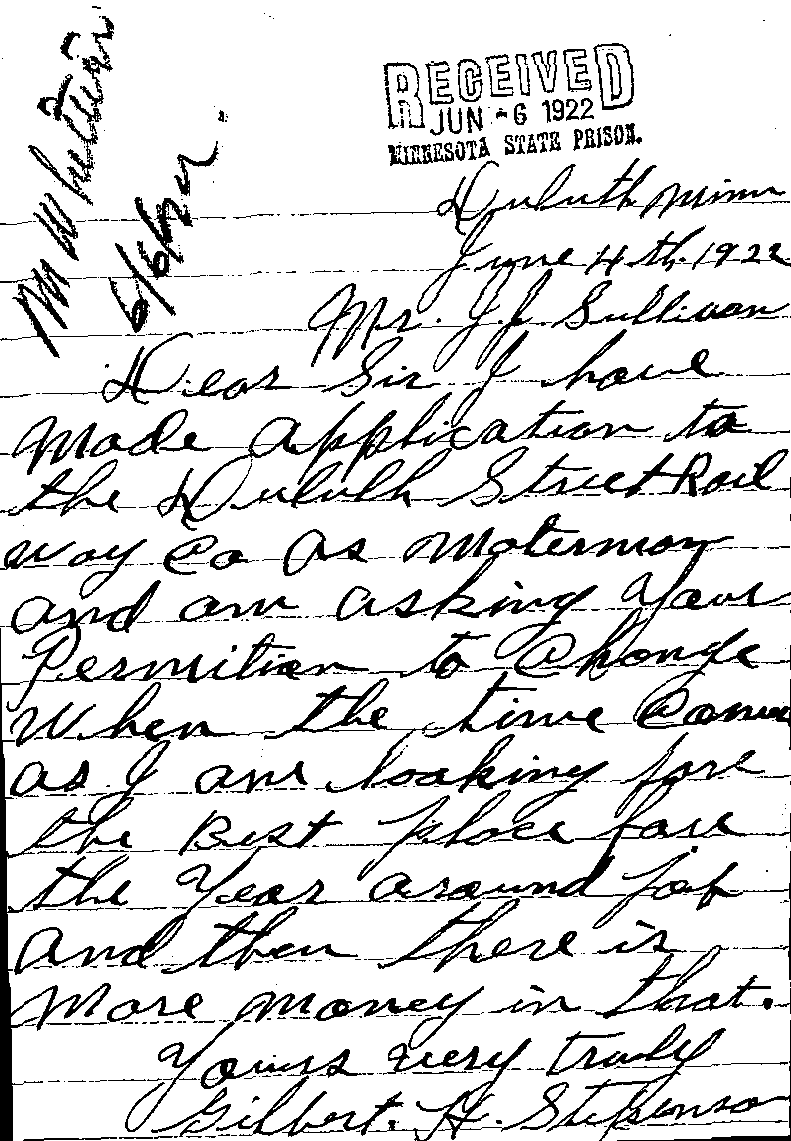 RECEIVED
JUN -6 1922
MINNESOTA STATE PRISON.
M Whittier
6/6/22.
Duluth Minn
June 4th. 1922
Mr. J.J. Sullivan
Dear Sir I have
Made application to
the Duluth Street Rail
way Co as Moterman
and am asking Your
Permition to Change
When the time Comes
as I am looking fore
the Best place fore
the Year around job
and then there is
More money in that.
Yours very truly
Gilbert. H. Stepenson